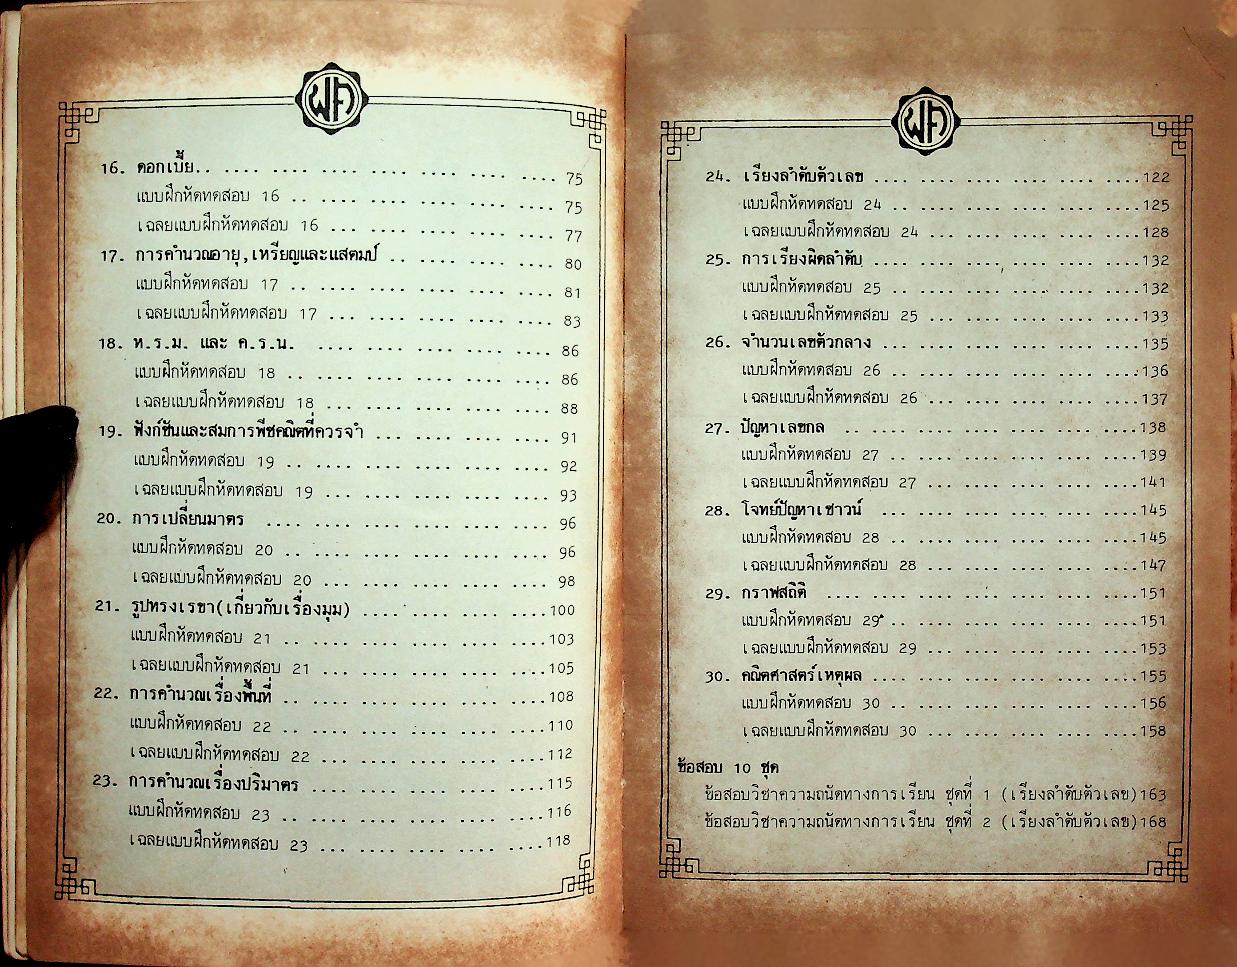 ฝค
16. ดอกเบี้ย.. .... .... .... .... .... .... .... 75
แบบฝึกหัดทดสอบ 16 .. .... .... .... .... .... 75
เฉลยแบบฝึกหัดทดสอบ 16 ... .... .... .... .... 77
17. การคำนวณอายุ,เหรียญและแสตมป์ .. .... .... .... 80
แบบฝึกหัดทดสอบ 17 .. .... .... .... .... .... 81
เฉลยแบบฝึกหัดทดสอบ 17 ... .... .... .... .... 83
18. ห.ร.ม. และ ค.ร.น. .... .... .... .... .... 86
แบบฝึกหัดทดสอบ 18 .. .... .... .... .... .... 86
เฉลยแบบฝึกหัดทดสอบ 18 ... .... .... .... .... 88
19. ฟังก์ชันและสมการพีชคณิตที่ควรจำ ... .... .... .... 91
แบบฝึกหัดทดสอบ 19 .. .... .... .... .... .... 92
เฉลยแบบฝึกหัดทดสอบ 19 ... .... .... .... .... 93
20. การเปลี่ยนมาตร .... .... .... .... .... .... 96
แบบฝึกหัดทดสอบ 20 .. .... .... .... .... .... 96
เฉลยแบบฝึกหัดทดสอบ 20 ... .... .... .... .... 98
21. รูปทรงเรขา(เกี่ยวกับเรื่องมุม) .... .... .... ....100
แบบฝึกหัดทดสอบ 21 .. .... .... .... .... ....103
เฉลยแบบฝึกหัดทดสอบ 21 ... .... .... .... ....105
22. การคำนวณเรื่องพื้นที่ .. .... .... .... .... ....108
แบบฝึกหัดทดสอบ 22 .. .... .... .... .... ....110
เฉลยแบบฝึกหัดทดสอบ 22 ... .... .... .... ....112
23. การคำนวณเรื่องปริมาตร .... .... .... .... ....115
แบบฝึกหัดทดสอบ 23 .. .... .... .... .... ....116
เฉลยแบบฝึกหัดทดสอบ 23 ... .... .... .... ....118
ฝค
24. เรียงลำดับตัวเลข .... .... .... .... .... ....122
แบบฝึกหัดทดสอบ 24 .. .... .... .... .... ....125
เฉลยแบบฝึกหัดทดสอบ 24 ... .... .... .... ....128
25. การเรียงผิดลำดับ .... .... .... .... .... ....132
แบบฝึกหัดทดสอบ 25 .. .... .... .... .... ....132
เฉลยแบบฝึกหัดทดสอบ 25 ... .... .... .... ....133
26. จำนวนเลขตัวกลาง ... .... .... .... .... ....135
แบบฝึกหัดทดสอบ 26 .. .... .... .... .... ....136
เฉลยแบบฝึกหัดทดสอบ 26 ... .... .... .... ....137
27. ปัญหาเลขกล .. .... .... .... .... .... ....138
แบบฝึกหัดทดสอบ 27 .. .... .... .... .... ....139
เฉลยแบบฝึกหัดทดสอบ 27 ... .... .... .... ....141
28. โจทย์ปัญหาเชาวน์ ... .... .... .... .... ....145
แบบฝึกหัดทดสอบ 28 .. .... .... .... .... ....145
เฉลยแบบฝึกหัดทดสอบ 28 ... .... .... .... ....147
29. กราฟสถิติ .... .... .... .... .... .... ....151
แบบฝึกหัดทดสอบ 29 .. .... .... .... .... ....151
เฉลยแบบฝึกหัดทดสอบ 29 ... .... .... .... ....153
30. คณิตศาสตร์เหตุผล .... .... .... .... .... ....155
แบบฝึกหัดทดสอบ 30 .. .... .... .... .... ....156
เฉลยแบบฝึกหัดทดสอบ 30 ... .... .... .... ....158
ข้อสอบ 10 ชุด
ข้อสอบวิชาความถนัดทางการเรียน ชุดที่ 1 (เรียงลำดับตัวเลข)163
ข้อสอบวิชาความถนัดทางการเรียน ชุดที่ 2 (เรียงลำดับตัวเลข)168